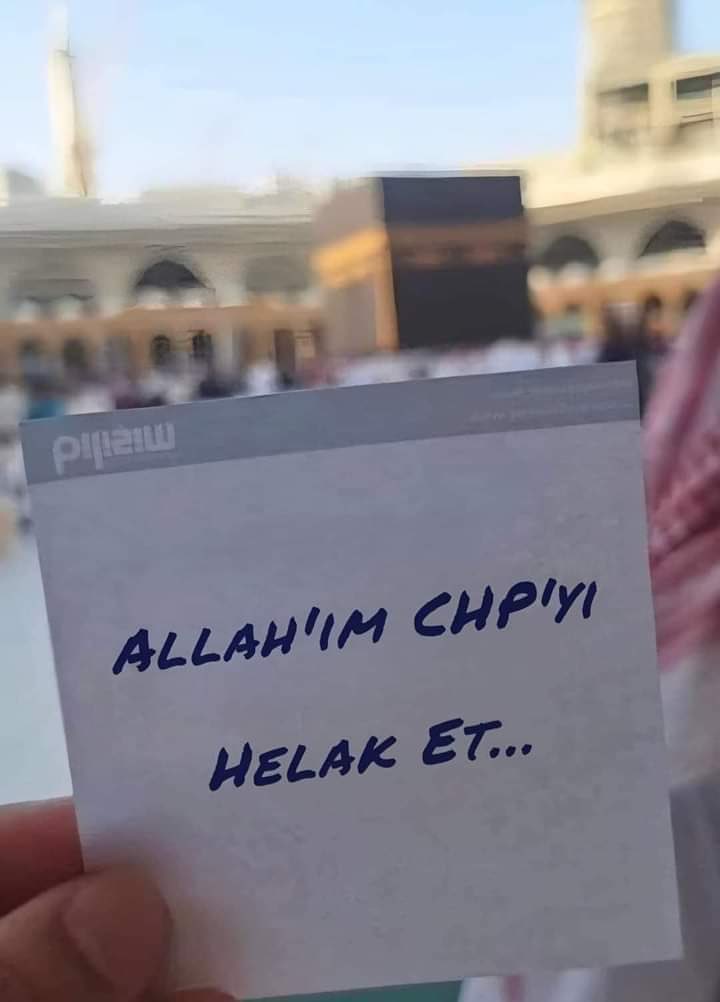 ALLAH'IM CHP'YI
HELAK ET...